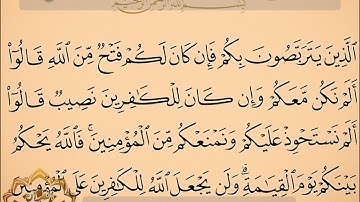 بسم الله الرحمن الرحيم
ٱلَّذِينَ يَتَرَبَّصُونَ بِكُمْ فَإِن كَانَ لَكُمْ فَتْحٌ مِّنَ ٱللَّهِ قَالُوٓا۟
أَلَمْ نَكُن مَّعَكُمْ وَإِن كَانَ لِلْكَـٰفِرِينَ نَصِيبٌ قَالُوٓا۟
أَلَمْ نَسْتَحْوِذْ عَلَيْكُمْ وَنَمْنَعْكُم مِّنَ ٱلْمُؤْمِنِينَ ۚ فَٱللَّهُ يَحْكُمُ
بَيْنَكُمْ يَوْمَ ٱلْقِيَـٰمَةِ ۗ وَلَن يَجْعَلَ ٱللَّهُ لِلْكَـٰفِرِينَ عَلَى ٱلْمُؤْمِنِينَ